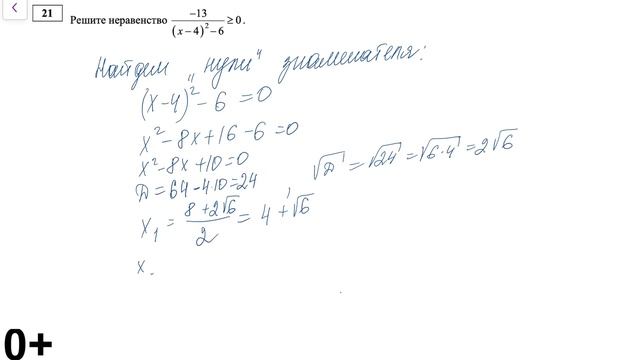 21 Решите неравенство −13/((x−4)²−6) ≥ 0 .
Найдем „нули“ знаменателя:
(x−4)²−6=0
x²−8x+16−6=0
x²−8x+10=0
Д=64−4·10=24
√Д=√24=√6·4=2√6
x₁ = (8+2√6)/2 = 4+√6
x
0+